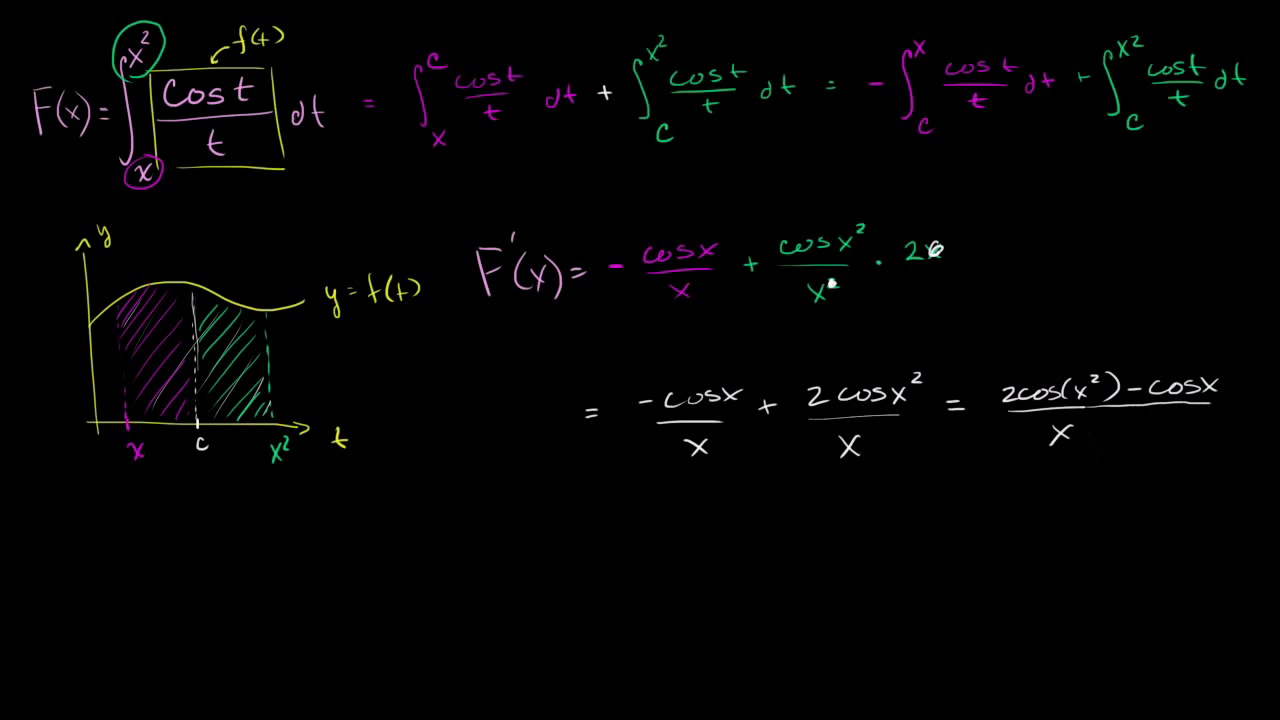 F(x) = ∫ₓ^{x²} cos t / t dt = ∫ₓ^{c} cos t / t dt + ∫_c^{x²} cos t / t dt = - ∫_c^{x} cos t / t dt + ∫_c^{x²} cos t / t dt
f(t)
y
y = f(t)
x c x² t
F'(x) = - cos x / x + cos x² / x² · 2x
= -cos x / x + 2 cos x² / x = 2cos(x²) - cos x / x